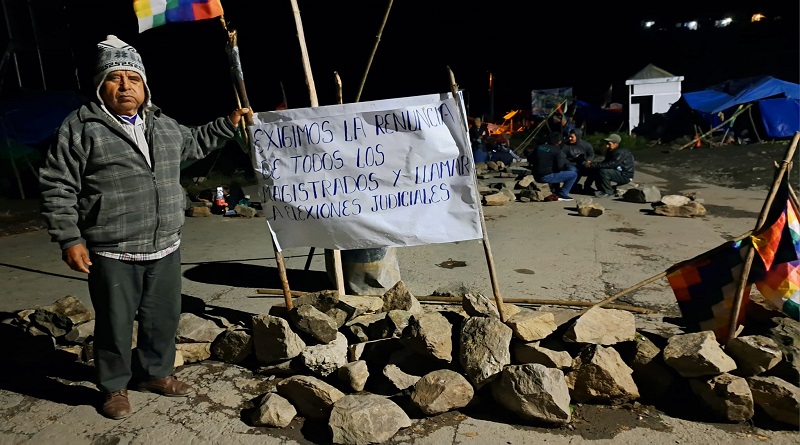 EXIGIMOS LA RENUNCIA
DE TODOS LOS
MAGISTRADOS Y LLAMAR
A ELEXIONES JUDICIALES